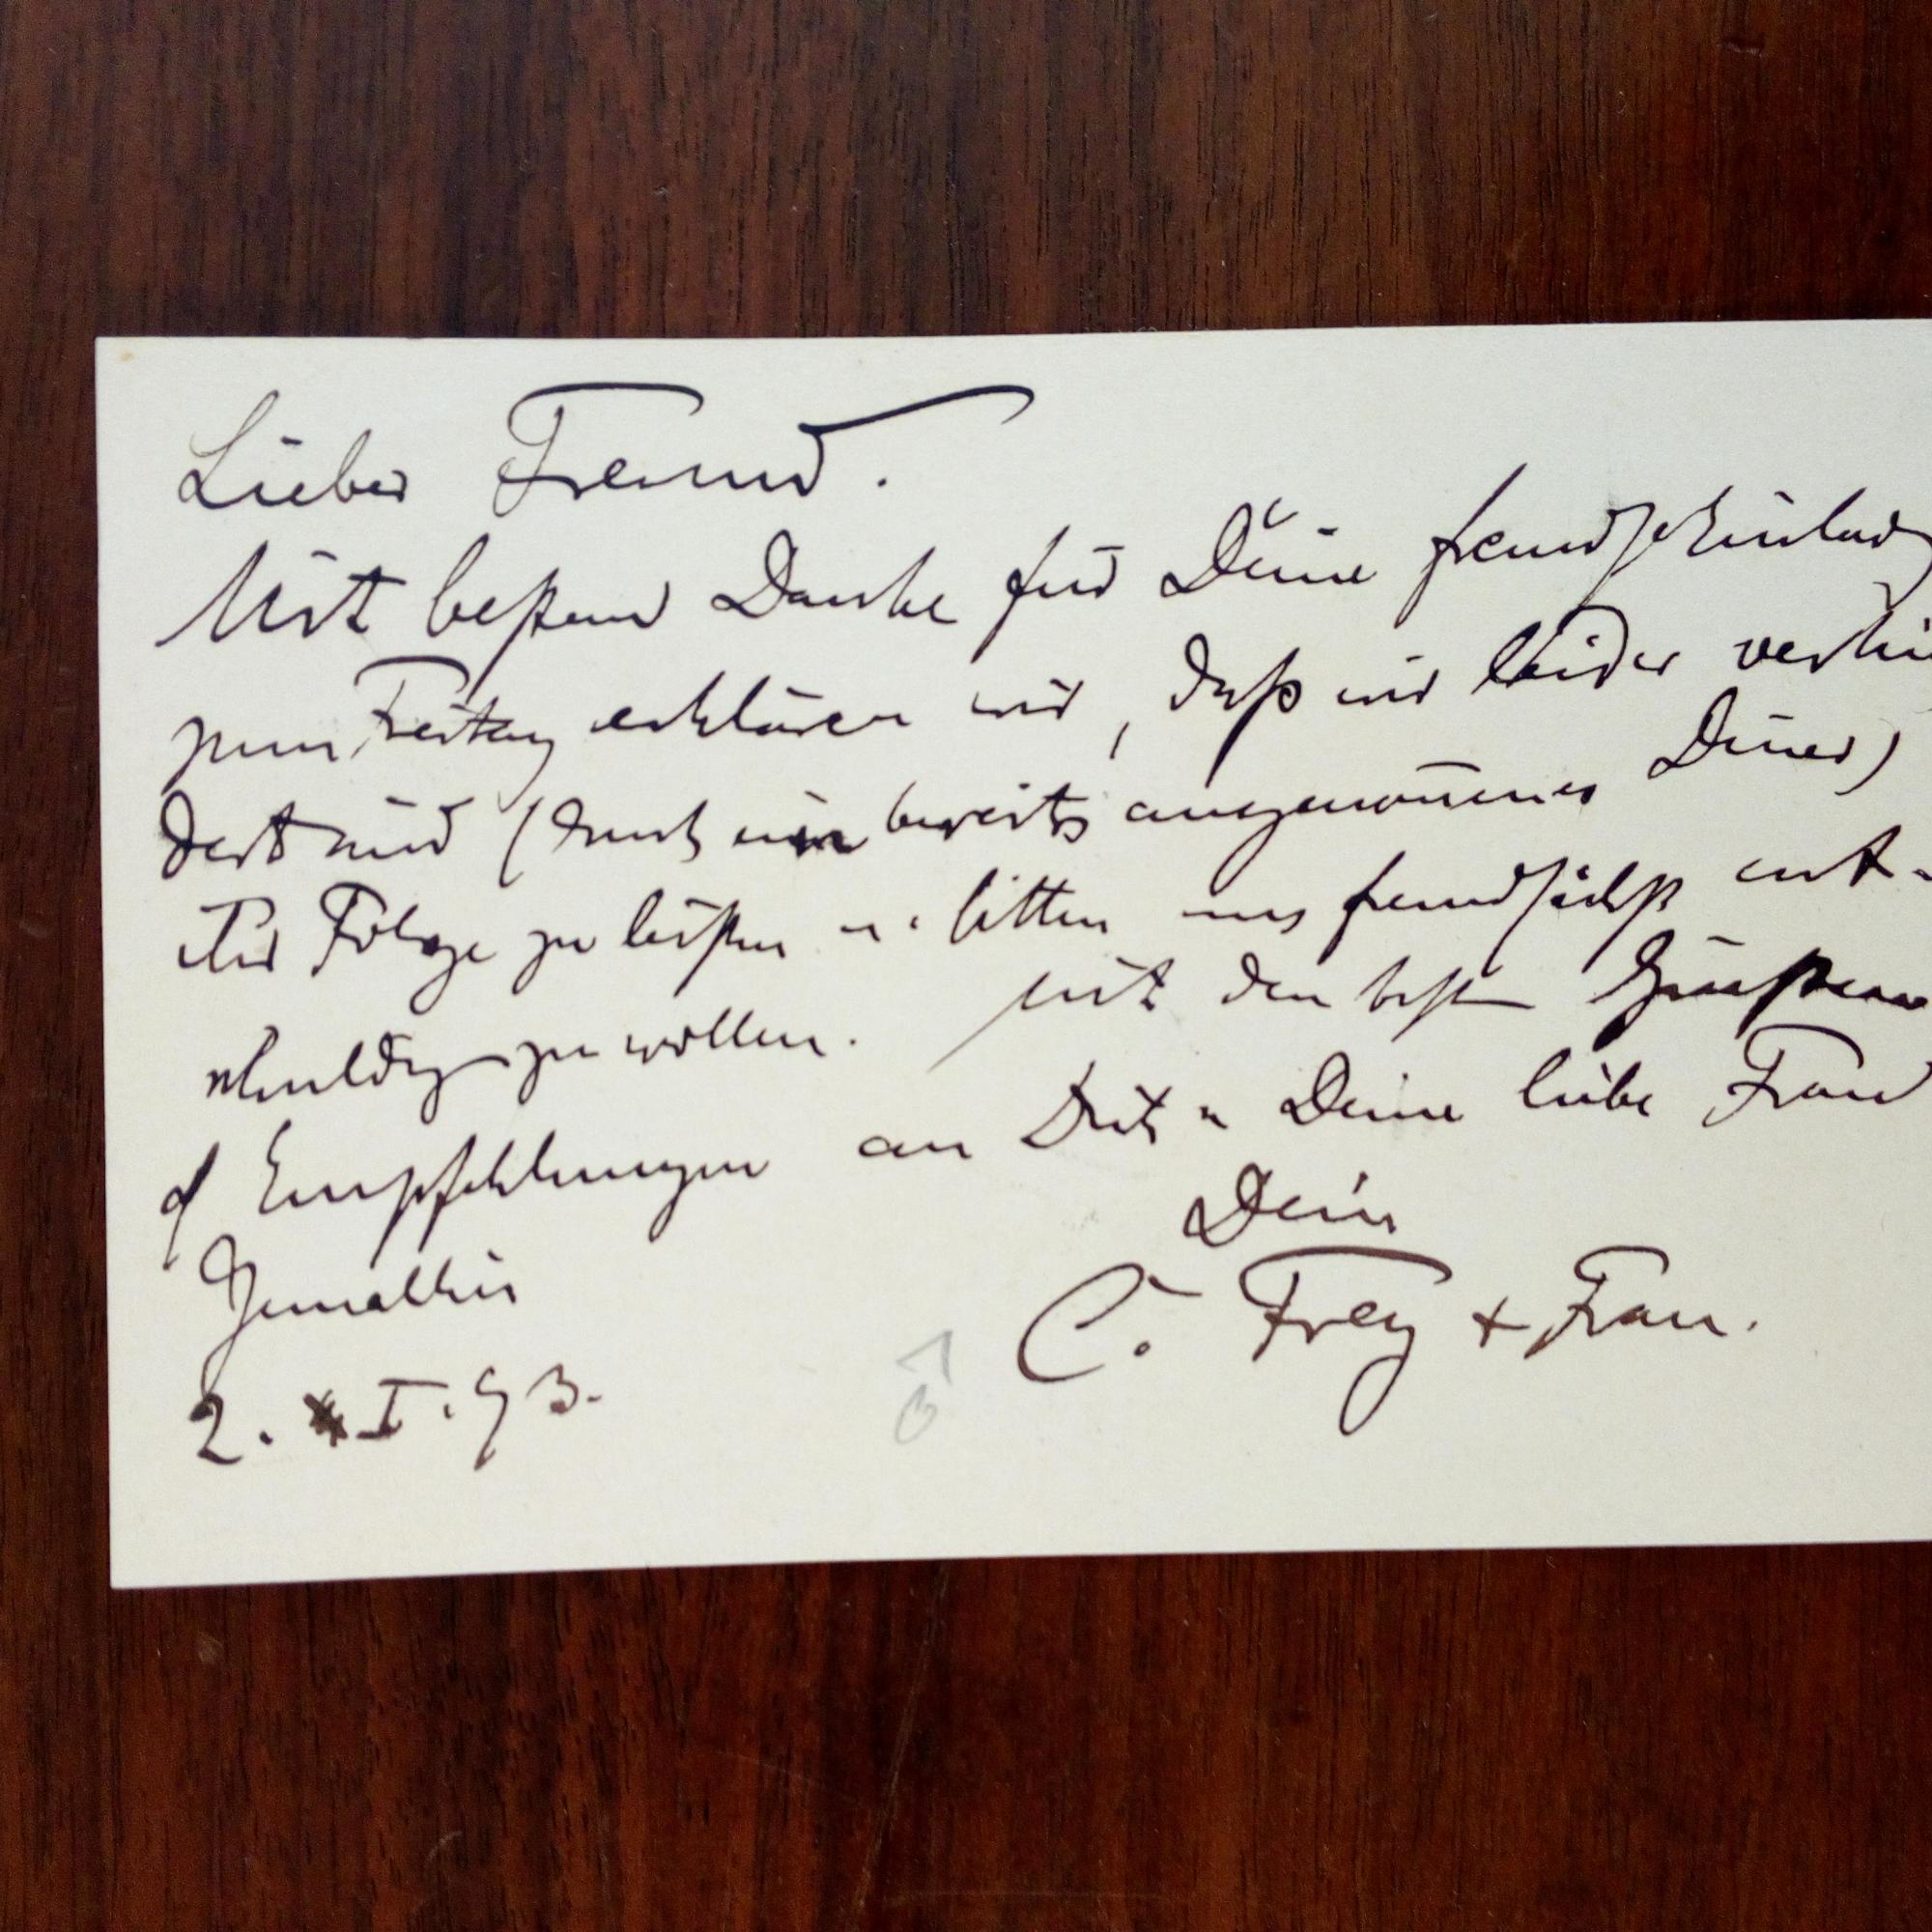 Lieber Freund.
Mit bestem Danke für Deine freundsch Einlad
zum Freitag erklären wir, daß wir leider verhin
dert sind (durch ein bereits angenom̄enes Diner)
ihr Folge zu leisten u. bitten uns freundschftlichst ent-
schuldigen zu wollen. mit den besten Grüßen
& Empfehlungen an Dich u Deine liebe Frau
Gemahlin
Dein
C. Frey + Frau.
2. I. 93.